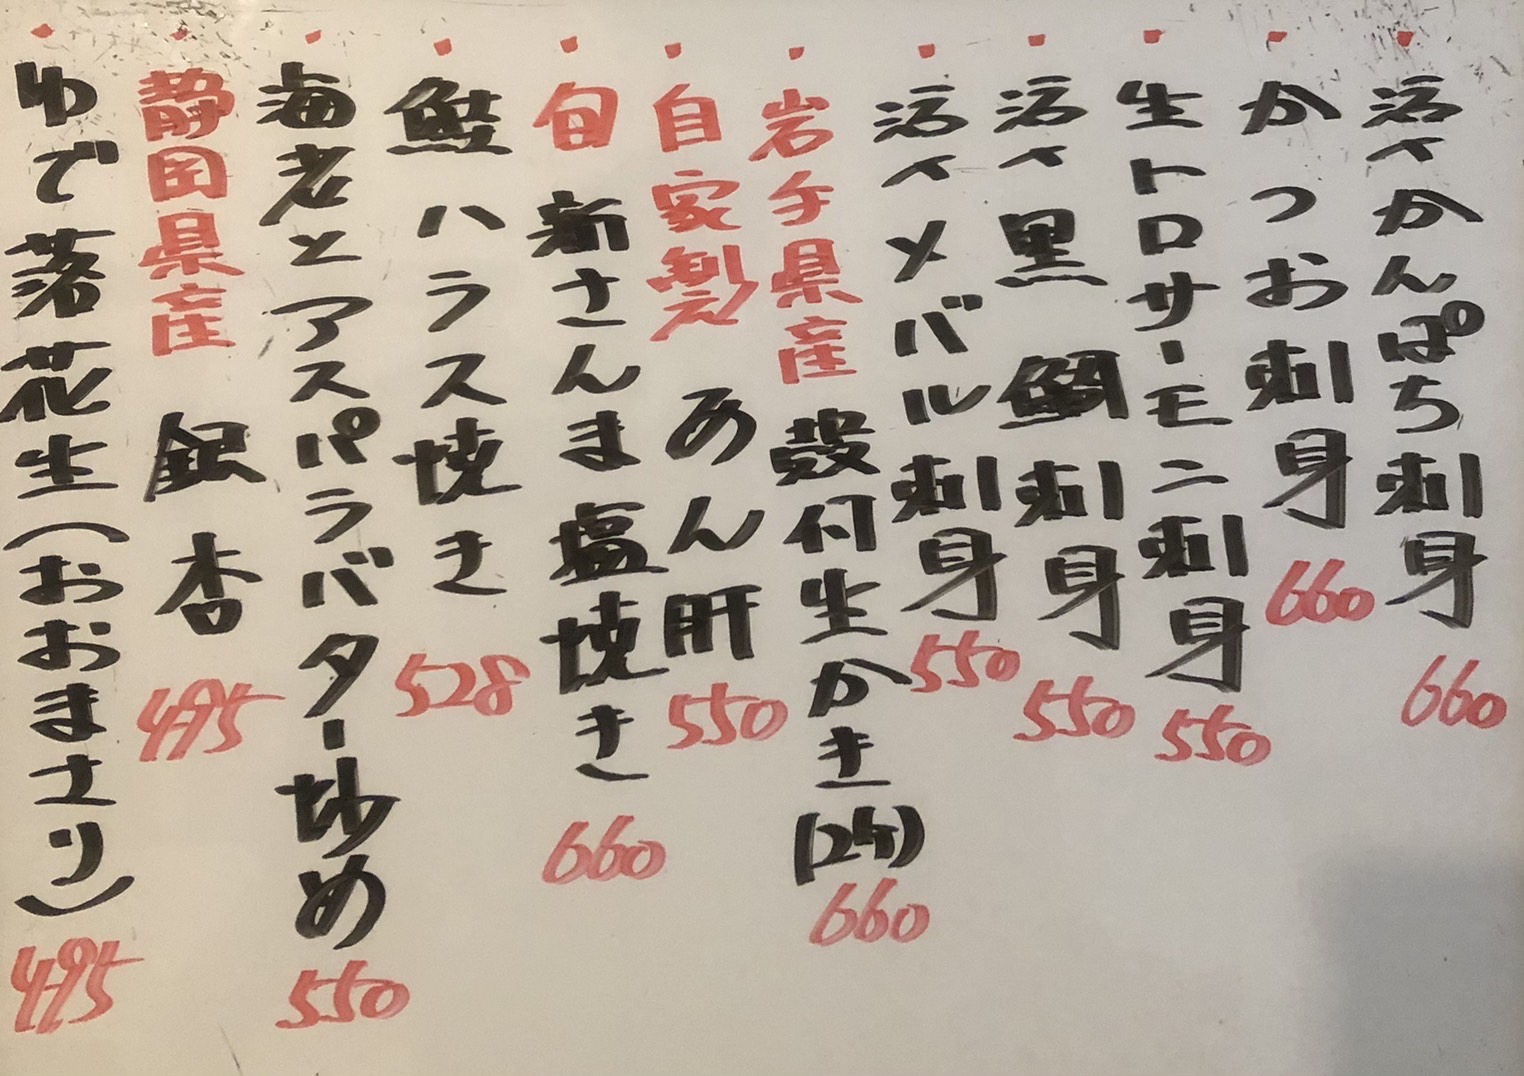 活〆かんぱち刺身 660
かつお刺身 660
生トロサーモン刺身 550
活〆黒鯛刺身 550
活〆メバル刺身 550
岩手県産 殻付生かき(2ケ) 660
自家製 あん肝 550
旬 新さんま塩焼き 660
鮭ハラス焼き 528
海老とアスパラバター炒め 550
静岡県産 銀杏 495
ゆで落花生(おおまさり) 495